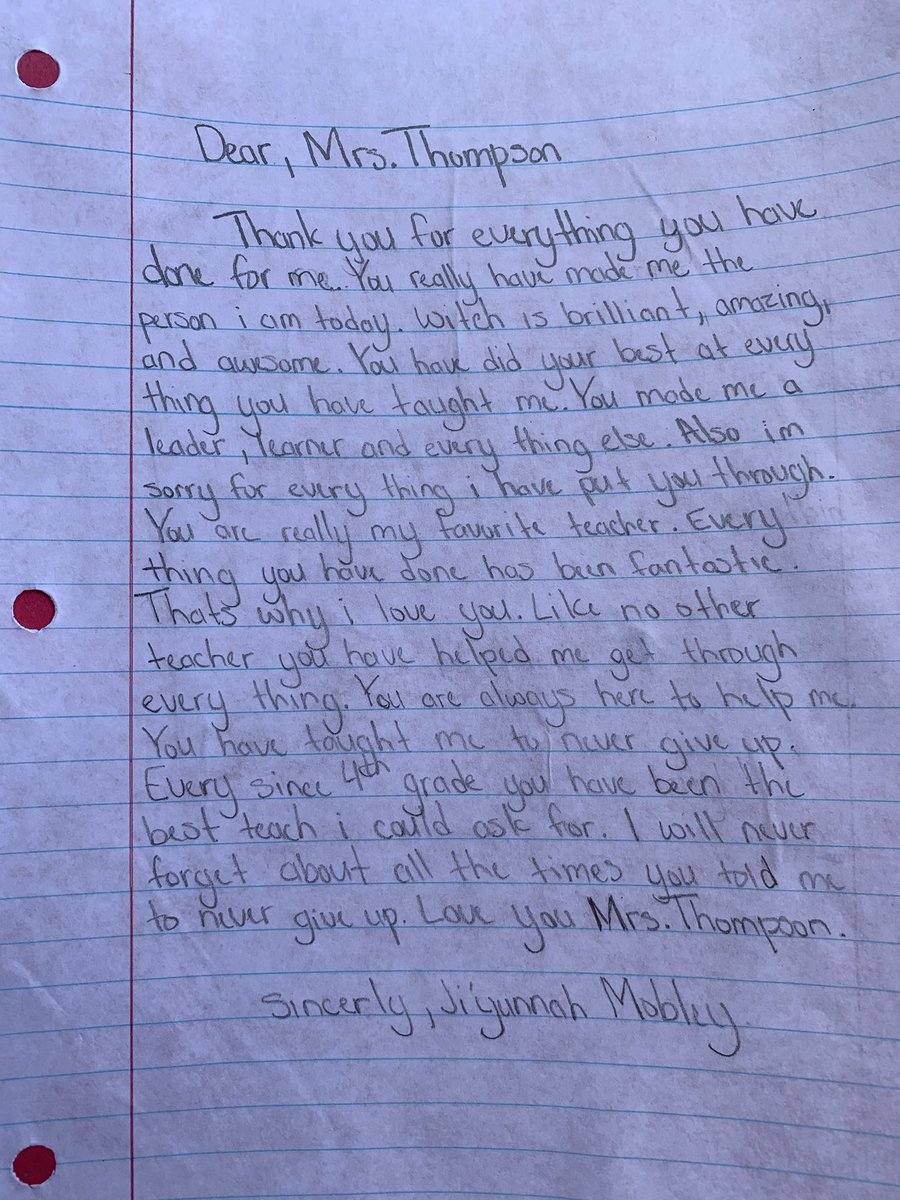 Dear, Mrs. Thompson
Thank you for everything you have
done for me. You really have made me the
person i am today. Witch is brilliant, amazing,
and awesome. You have did your best at every
thing you have taught me. You made me a
leader, learner and every thing else. Also im
sorry for every thing i have put you through.
You are really my favorite teacher. Every
thing you have done has been fantastic.
Thats why i love you. Like no other
teacher you have helped me get through
every thing. You are always here to help me.
You have tought me to never give up.
Every since 4th grade you have been the
best teach i could ask for. I will never
forget about all the times you told me
to never give up. Love you Mrs. Thompson.
Sincerly, Ji'yunnah Mobley